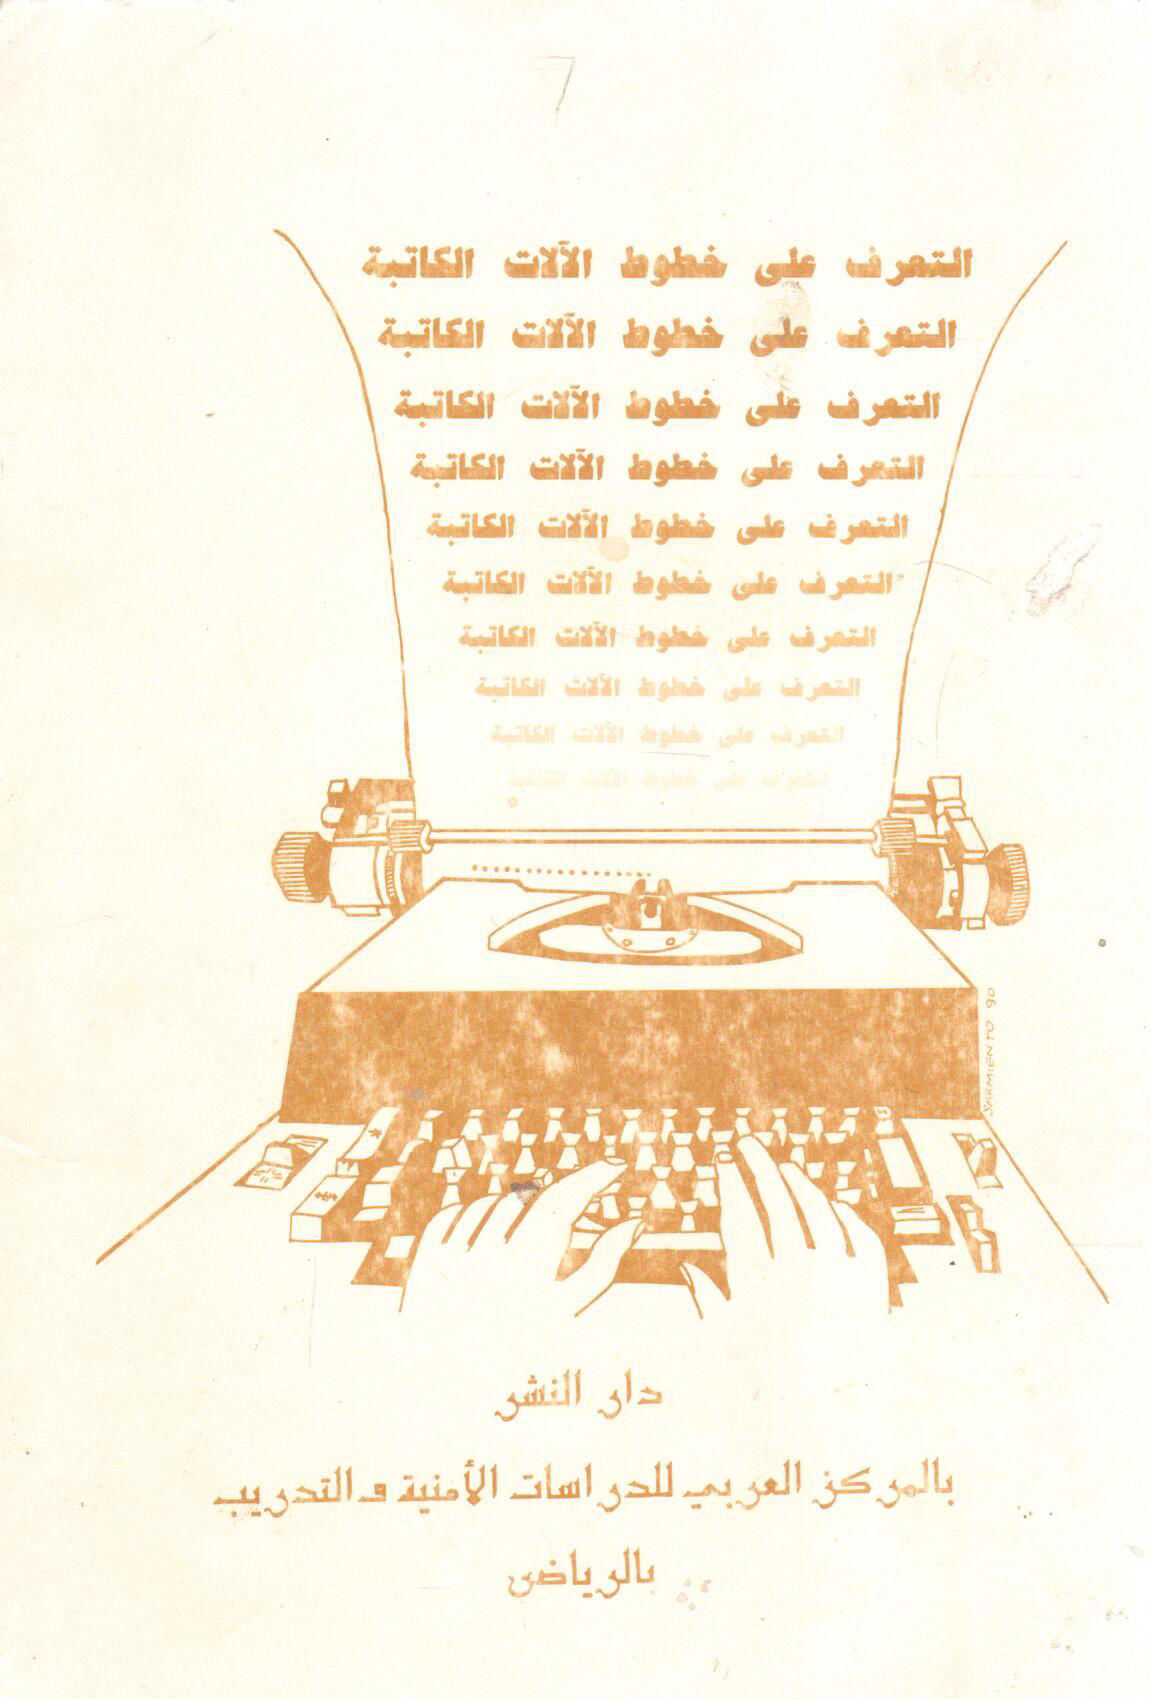 التعرف على خطوط الآلات الكاتبة
التعرف على خطوط الآلات الكاتبة
التعرف على خطوط الآلات الكاتبة
التعرف على خطوط الآلات الكاتبة
التعرف على خطوط الآلات الكاتبة
التعرف على خطوط الآلات الكاتبة
التعرف على خطوط الآلات الكاتبة
التعرف على خطوط الآلات الكاتبة
التعرف على خطوط الآلات الكاتبة
التعرف على خطوط الآلات الكاتبة
SARMIENTO 90
دار النشر
بالمركز العربي للدراسات الأمنية والتدريب
بالرياض